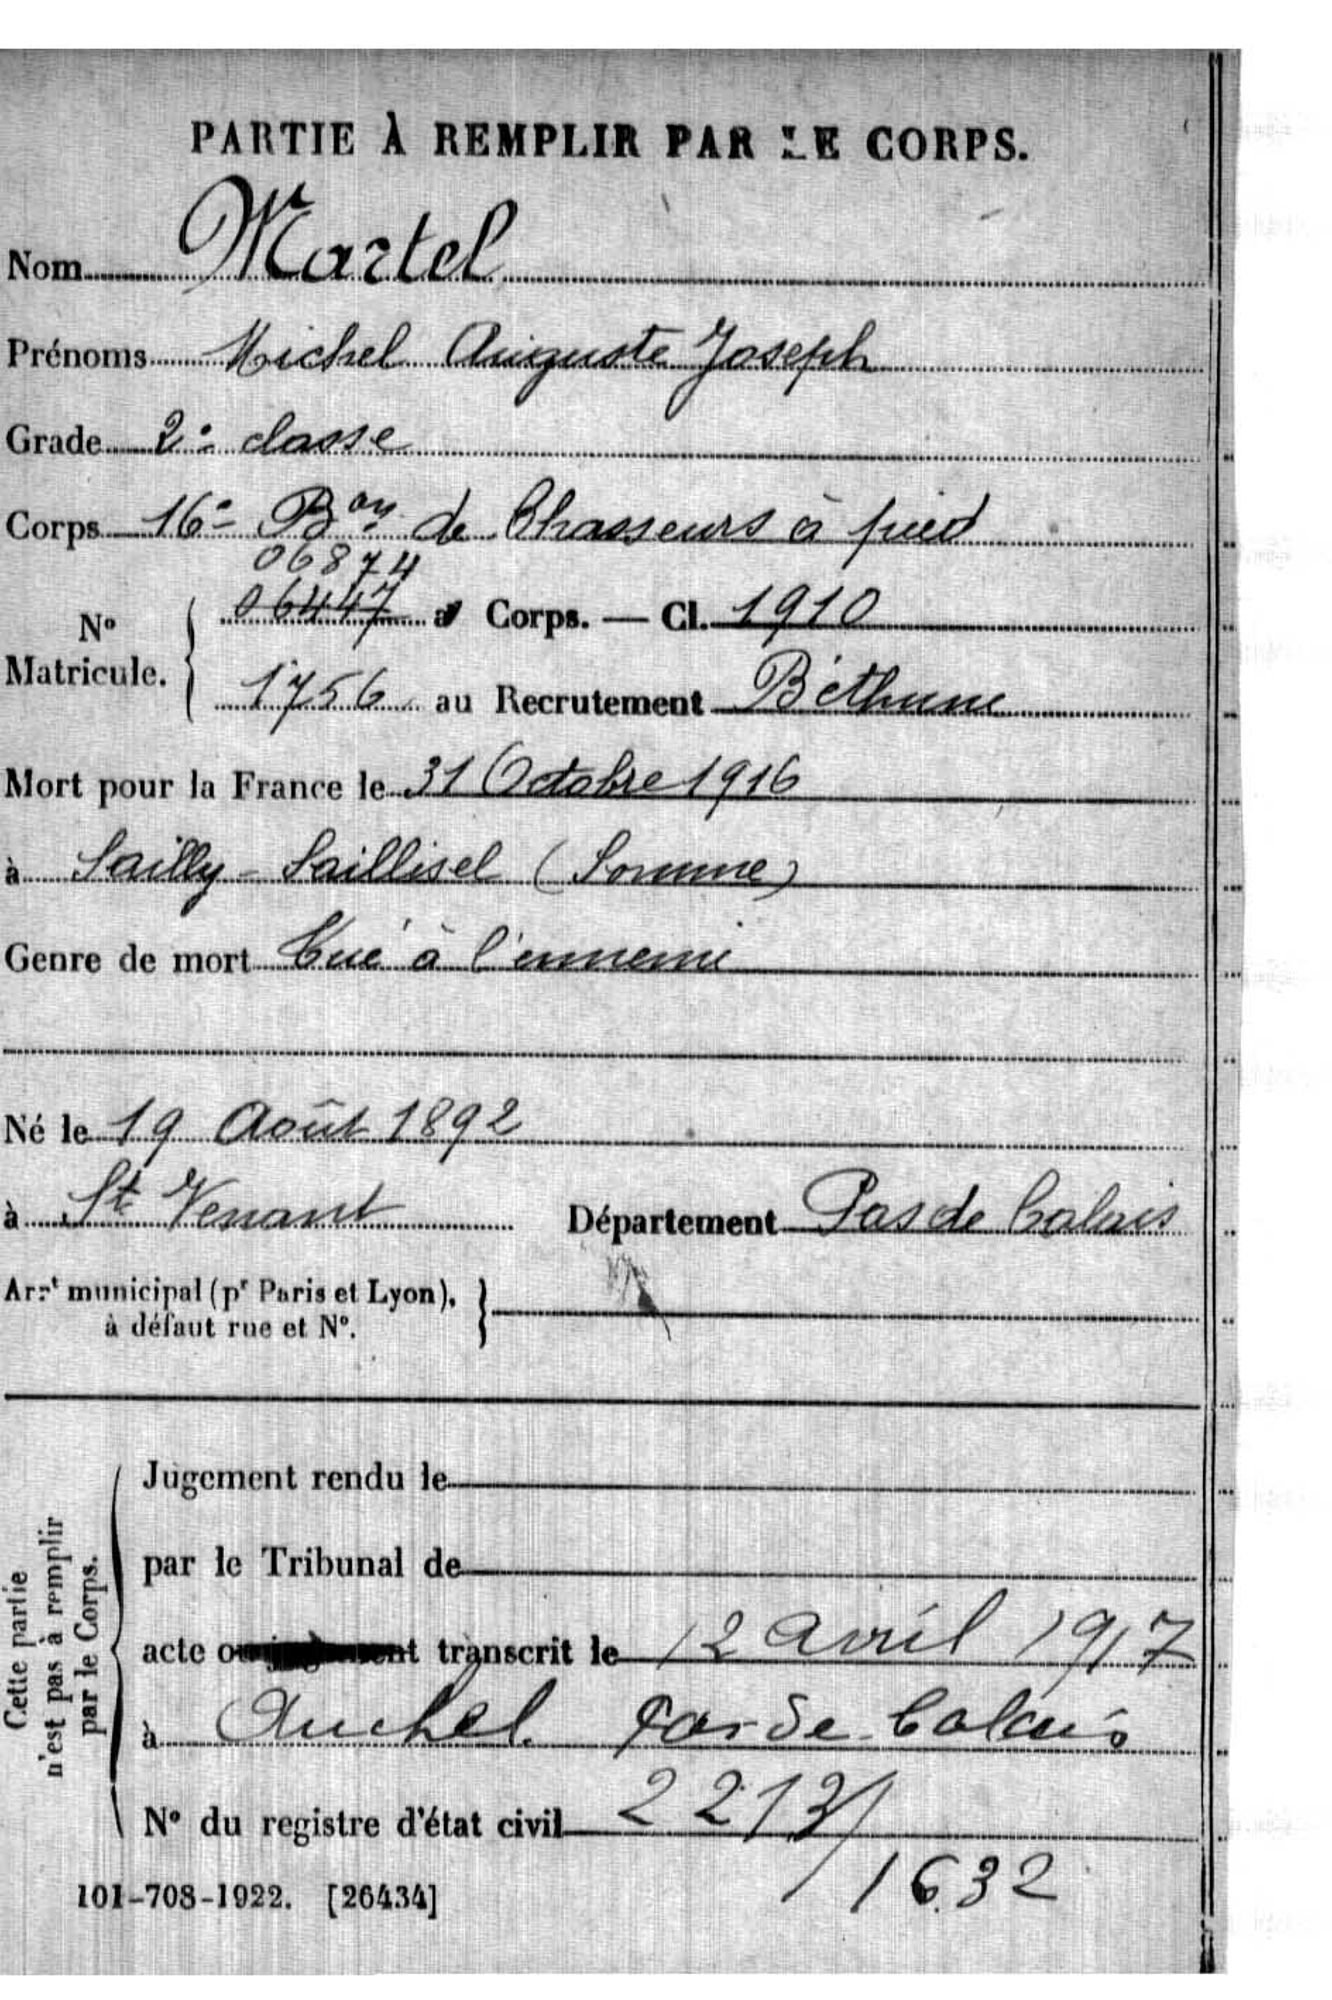 PARTIE À REMPLIR PAR LE CORPS.
Nom Martel
Prénoms Michel Auguste Joseph
Grade 2e classe
Corps 16e Bon de Chasseurs à pied
06874
06447 au Corps. — Cl. 1910
N° Matricule.
1756 au Recrutement Béthune
Mort pour la France le 31 Octobre 1916
à Sailly-Saillisel (Somme)
Genre de mort Tué à l'ennemi
Né le 19 Août 1892
à St Venant Département Pas de Calais
Arrt municipal (pr Paris et Lyon),
à défaut rue et N°.
Cette partie
n'est pas à remplir
par le Corps.
Jugement rendu le
par le Tribunal de
acte ou jugement transcrit le 12 avril 1917
à Auchel Pas de Calais
N° du registre d'état civil 2213/
1632
101-708-1922. [26434]